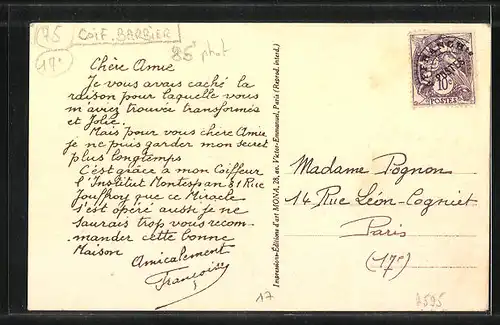 75
COIF. BARBIER
17e
85
Chère Amie
Je vous avais caché la
raison pour laquelle vous
m'aviez trouvée transformée
et Jolie.
Mais pour vous chère Amie
je ne puis garder mon secret
plus longtemps
C'est grâce à mon Coiffeur
l'Institut Montespan 81 Rue
Jouffroy que ce Miracle
s'est opéré aussi je ne
saurais trop vous recom-
mander cette bonne
Maison
Amicalement
Françoise
Impression-Editions d'art MONA, 28, av. Victor-Emmanuel, Paris (Reprod. interd.)
AFFRANCHts
POSTES
10c
POSTES
Madame Pognon
14 Rue Léon-Cogniet
Paris
(17e)
17
A595